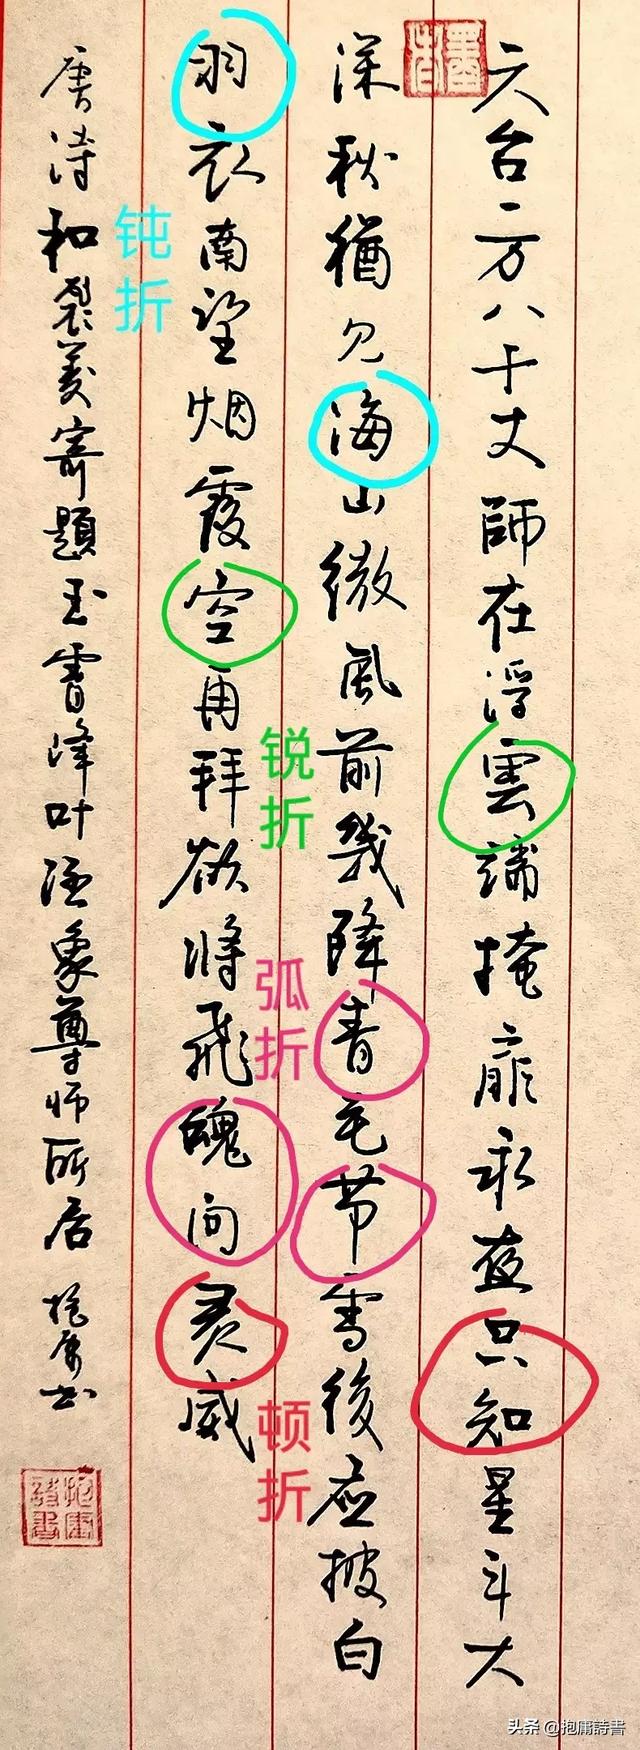 天台一万八千丈師在浮雲端掩扉永夜只知星斗大
深秋猶见海山微風前幾降青毛节雪後应披白
羽衣南望烟霞空再拜欲將飛魄问灵威
唐诗和袭美寄題玉霄峰叶涵象尊师所居 抱庸书
钝折
锐折
弧折
顿折
抱庸詩書
头条 @抱庸詩書